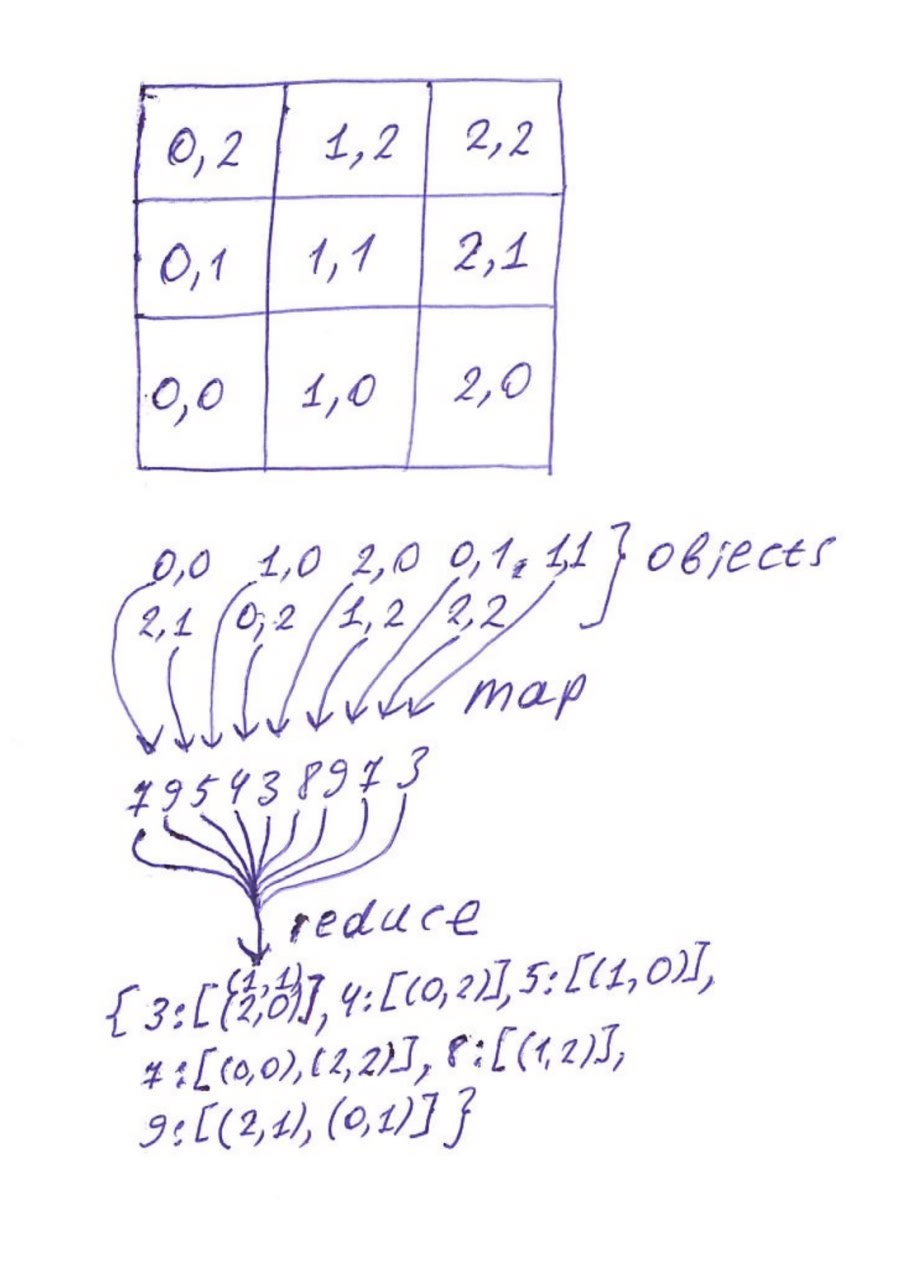 0,2 1,2 2,2
0,1 1,1 2,1
0,0 1,0 2,0
0,0 1,0 2,0 0,1 1,1 } objects
2,1 0,2 1,2 2,2
map
7 9 5 4 3 8 9 7 3
reduce
(1,1)
{ 3:[(2,0)], 4:[(0,2)], 5:[(1,0)],
7:[(0,0),(2,2)], 8:[(1,2)],
9:[(2,1), (0,1)] }